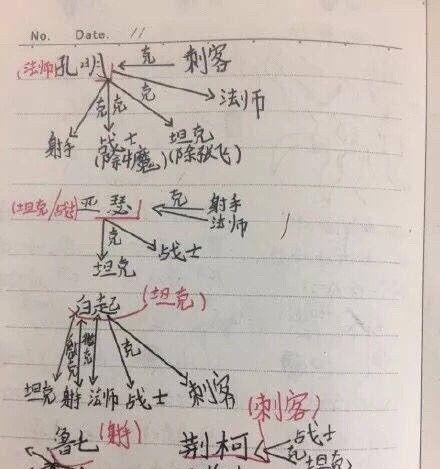 No. Date. 11
(法师)孔明 克 刺客
克 克 克 法师
射手 战士 坦克
(除牛魔) (除张飞)
(坦克/战士) 亚瑟 克 射手
法师
克 战士
坦克
白起 (坦克)
克 克
坦克 射 法师 战士 刺客
鲁七 (射手) 荆柯 (刺客) 战士
克 坦克